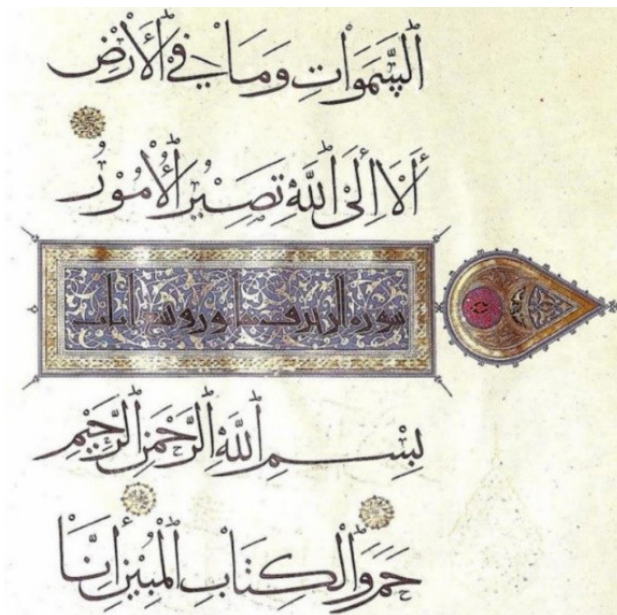 ٱلسَّمَوَاتِ وَمَا فِي ٱلْأَرْضِ
أَلَا إِلَى ٱللَّهِ تَصِيرُ ٱلْأُمُورُ
سورة الزخرف
بِسْمِ ٱللَّهِ ٱلرَّحْمَٰنِ ٱلرَّحِيمِ
حَمَ وَٱلْكِتَابِ ٱلْمُبِينِ إِنَّا